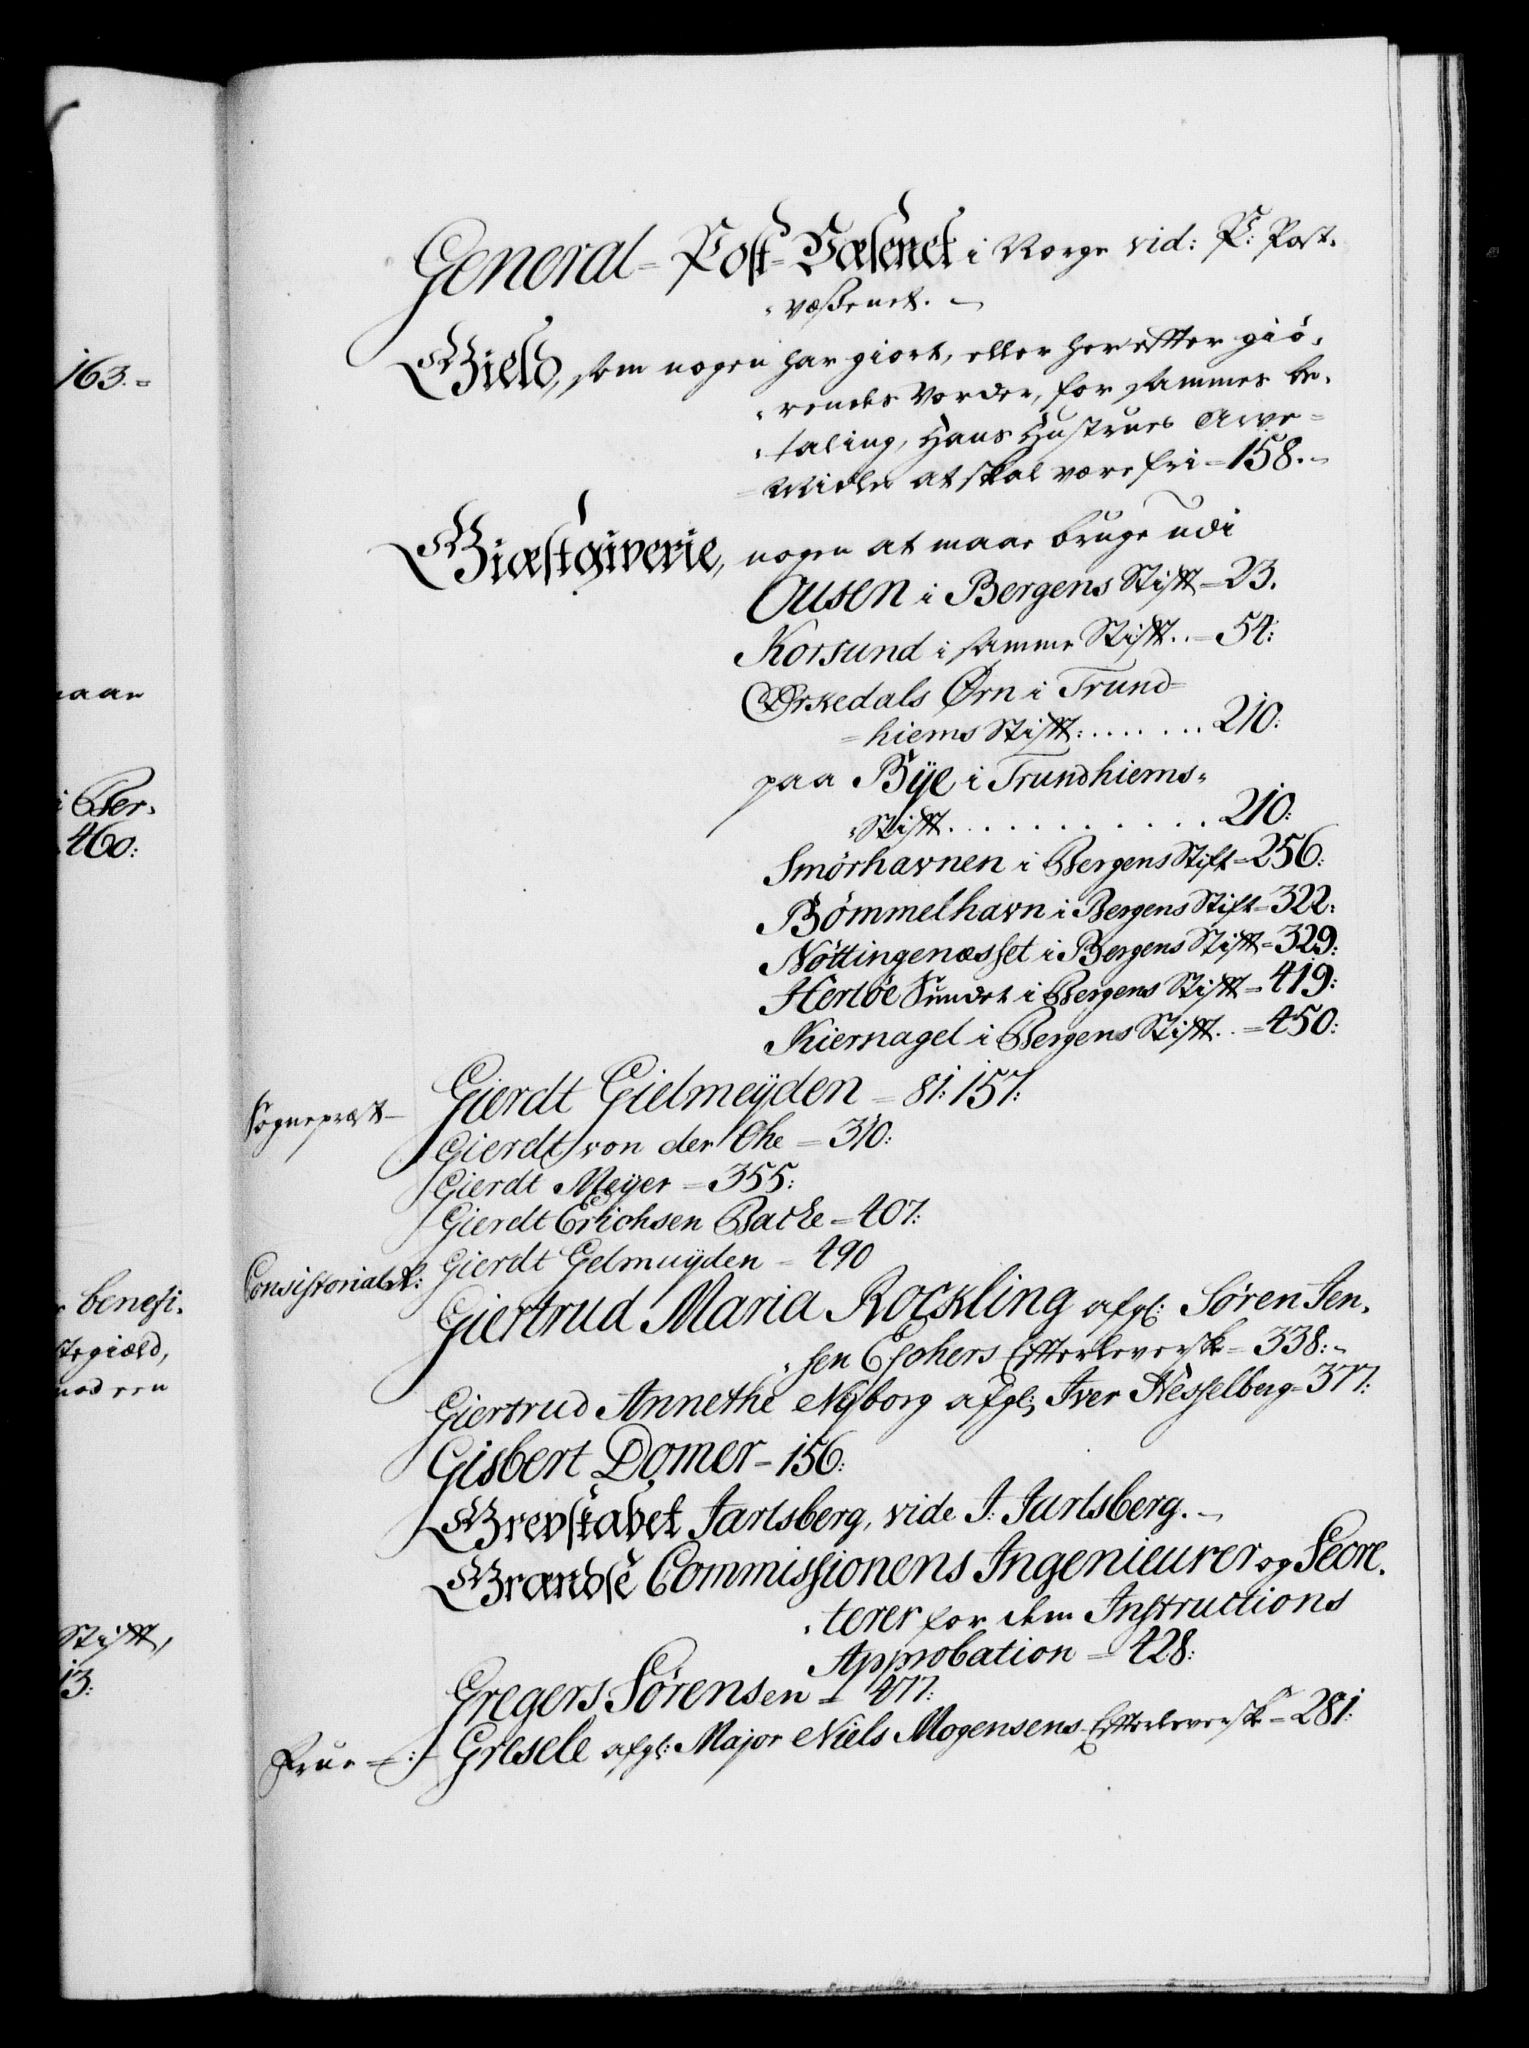 163.=
naar
i Ber,
460:
r benefi,
stegiæld,
mod een
Stifft,
13:
General-Post-Væsenet i Norge vid: P: Post,
,væsenet.
Gield, som nogen har giort, eller herefter giö,
,rendes vorder, for sammes be,
,taling, Hans Hustrues Arve=
=Midler at skal være frie=158.
Giæstgiverie, nogen at maae bruge udi
Ousen i Bergens Stifft=23.
Korsund i samme Stifft..=54:
Ørkedals Ørn i Trund=
=hiems Stifft:.......210:
paa Bÿe i Trundhiems,
,Stifft............210:
Smörhavnen i Bergens Stift=256:
Bömmelhavn i Bergens Stift=322:
Nöttingenæsset i Bergens Stifft=329:
Hertöe Sundet i Bergens Stifft=419:
Kiernagel i Bergens Stifft..=450:
Sognepræst— Gierdt Gielmeÿden=81:157:
Gierdt von der Ohe=310:
Gierdt Meÿer=355:
Gierdt Erichsen Backe=407:
Consistorial R: Gierdt Gelmuÿden=490
Giertrud Maria Rockling afgl: Søren Jen,
,sen Eschers Efterleverske=338:
Giertrud Annethe Nÿborg afgl: Iver Hesselberg=377:
Gisbert Domer=156:
Grevskabet Jarlsberg, vide J: Jarlsberg.
Grændse Commissionens Ingenieurer og Secre,
,terer for dem Instructions
Approbation=428:
Gregers Sörensen=477:
Frue Gresele afgl: Major Niels Mogensens Efterleverske=281: